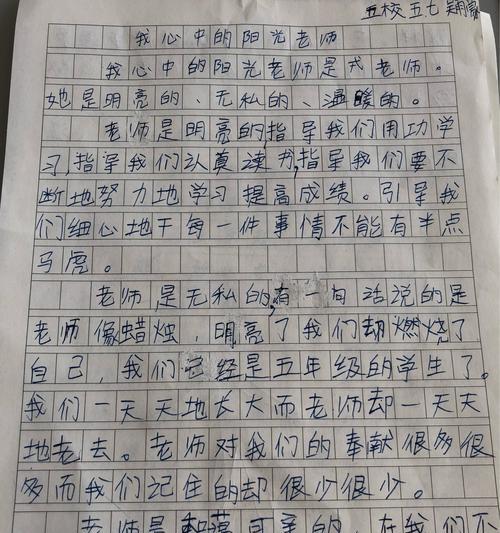 五校五七
我心中的阳光老师
我心中的阳光老师是弍老师。
她是明亮的、无私的、温暖的。
老师是明亮的,指导我们用功学
习,指导我们认真读书,指导我们要不
断地努力地学习提高成绩。引导我
们细心地干每一件事情不能有半点
马虎。
老师是无私的,有一句话说的是
老师像蜡烛,明亮了我们却燃烧了
自己,我们已经是五年级的学生了。
我们一天天地长大而老师却一天天
地老去。老师对我们的奉献很多很
多而我们记住的却很少很少。
老师是和蔼可亲的,在我们不